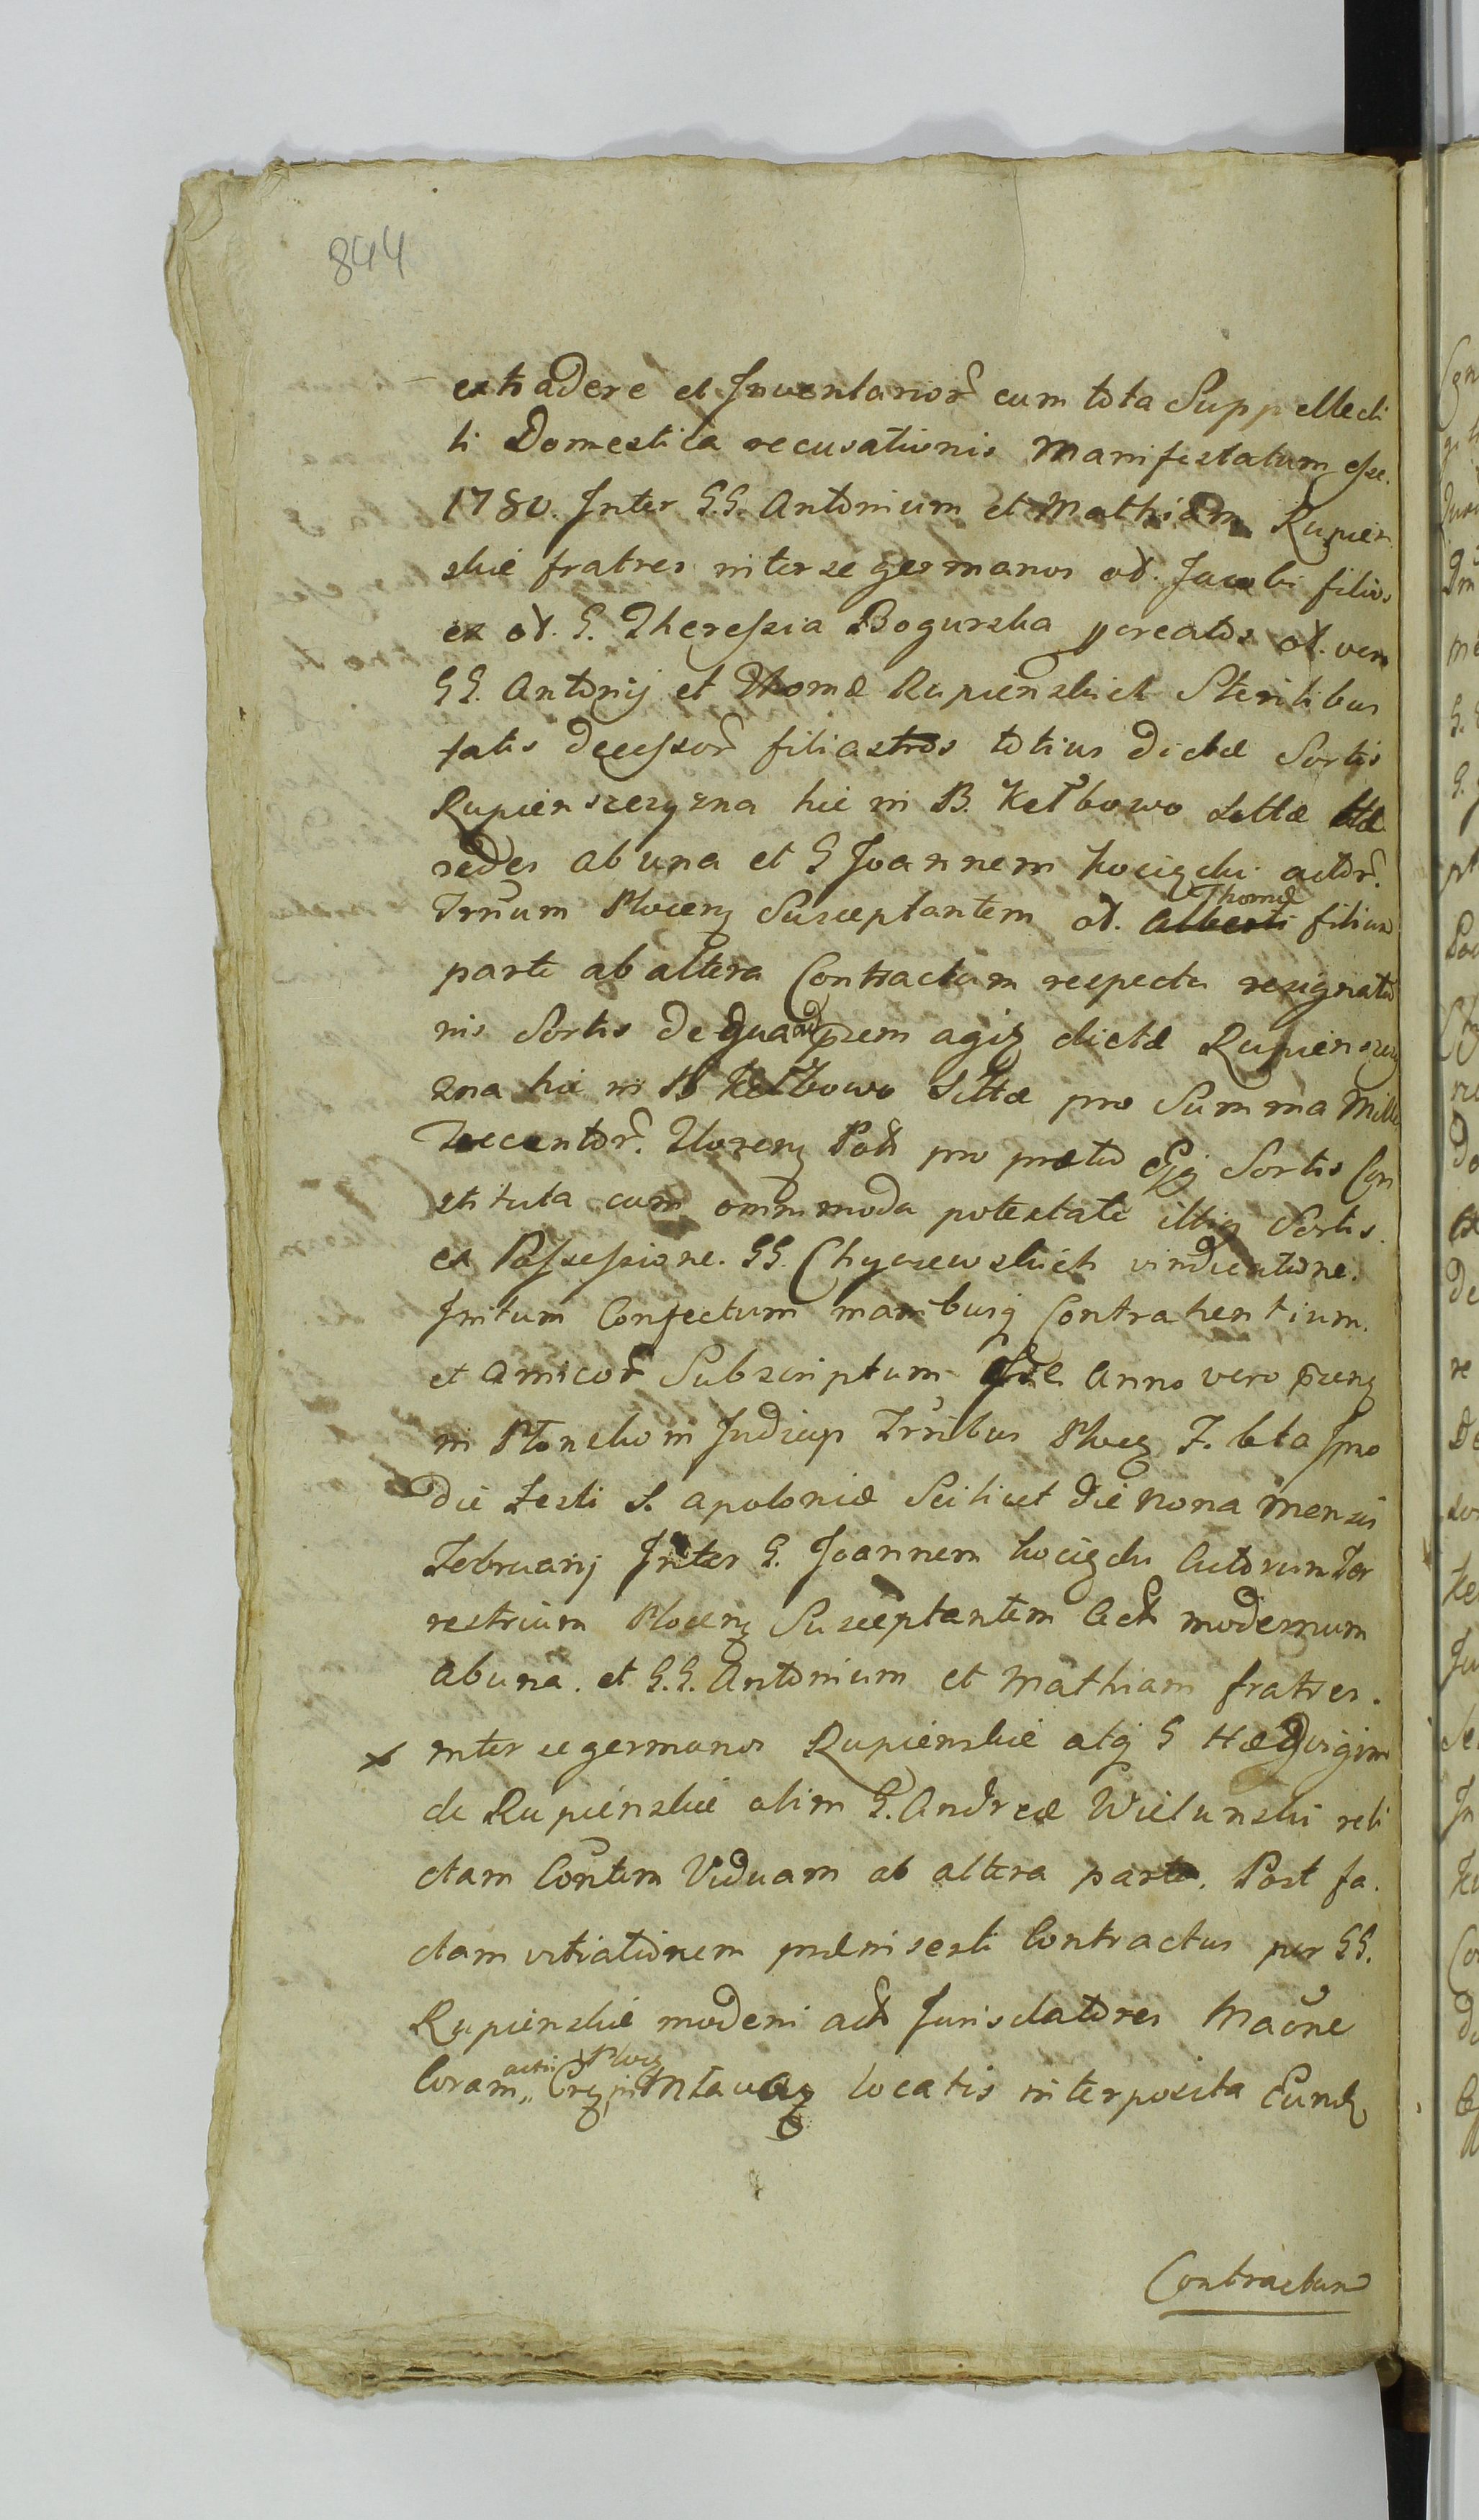 844
extradere et Inventarior cum tota Suppellecti
li Domestica recusationis Manifestatum esse.
1780. Inter G.G. Antonium et Mathiam Rupien
skie fratres inter se germanos od. Jacobi filios
ex od. G. Theressia Bogurska pcreatos od. vero
GG. Antonij et Thomæ Rupienskich Sterilibus
fatis decessor filiastros totius dictæ Sortis
Rupienszczyzna hic in B. Kełbowo sittæ hæ
redes ab una et G Joannem Kocięcki actor.
Trrium Plocenz Susceptantem od. Alberti Thomæ filium
parte ab altera Contractum respectu resignatio
nis Sortis de qua ad præm agiz dictæ Rupienszczy
zna hic in B Kełbowo Sittæ pro Summa Mille
Trecentor. Florenz Pol pro prætio Ejq Sortis Con
stituta cum omnimoda potestate illiq Sortis.
ex Possessione. GG. Chyczewskich vindicatione.
Initum Confectum manibusq Contrahentium.
et amicor Subscriptum esse Anno vero præenz
in Płonsko in Judicijs Trribus Plocz F. 6ta ipso
die festi S. Apoloniæ Scilicet die nona Mensis
Februarij Inter G. Joannem Kocięcki Actorum Ter
restrium Plocenz Susceptantem Act modernum
ab una. et G.G. Antonium et Mathiam fratres.
x inter se germanos Rupienskie atq G Hædvigim
de Rupienskie olim G. Andreæ Wielunski reli
ctam Contem Viduam ab altera parte. Post fa.
ctam vitiationem præinserti Contractus per GG.
Rupienskie moderni act Jurisdatores Maone
Coram actis Crz Plocz in Mlawaz locatis interposita Eundz
Contractum